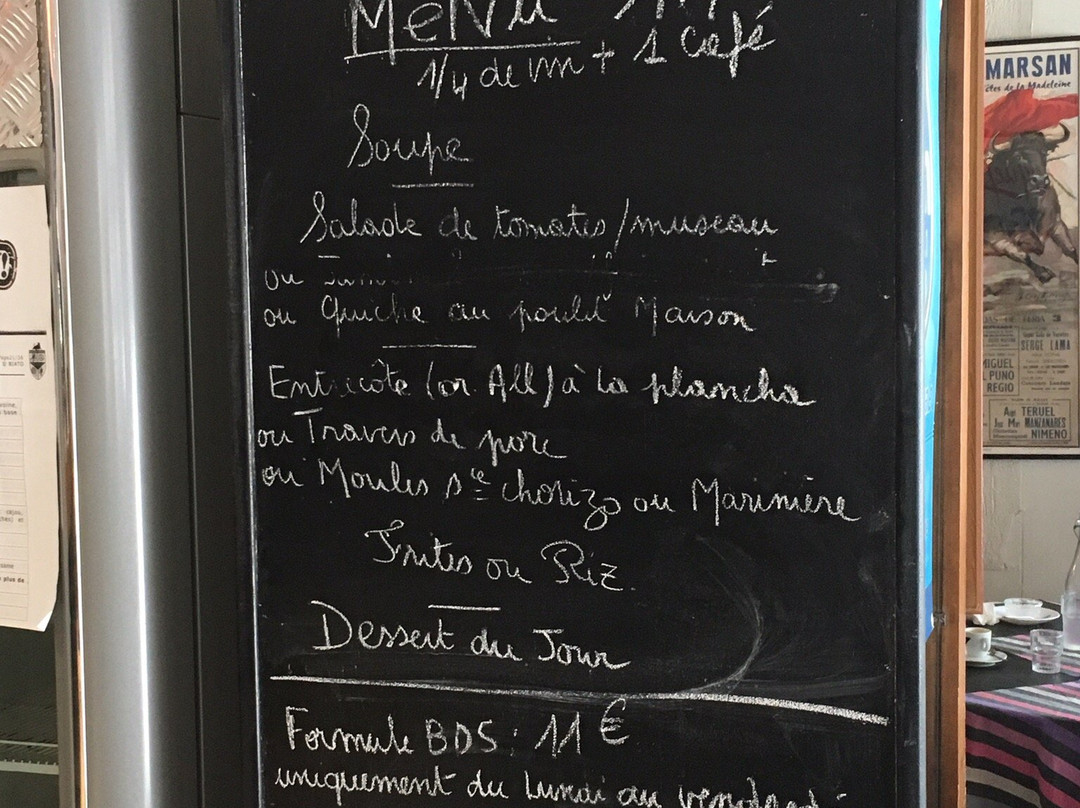 Menu
1/4 de vin + 1 Café
Soupe
Salade de tomates/museau
ou
ou Quiche au poulet Maison
Entrecôte (or All) à la plancha
ou Travers de porc
ou Moules sce chorizo ou Marinière
Frites ou Riz
Dessert du Jour
Formule BDS : 11 €
uniquement du Lundi au vendredi
MARSAN
êtes de la Madeleine
SERGE LAMA
MIGUEL
PUNO
REGIO
TERUEL
MANZANARES
NIMENO
plus de